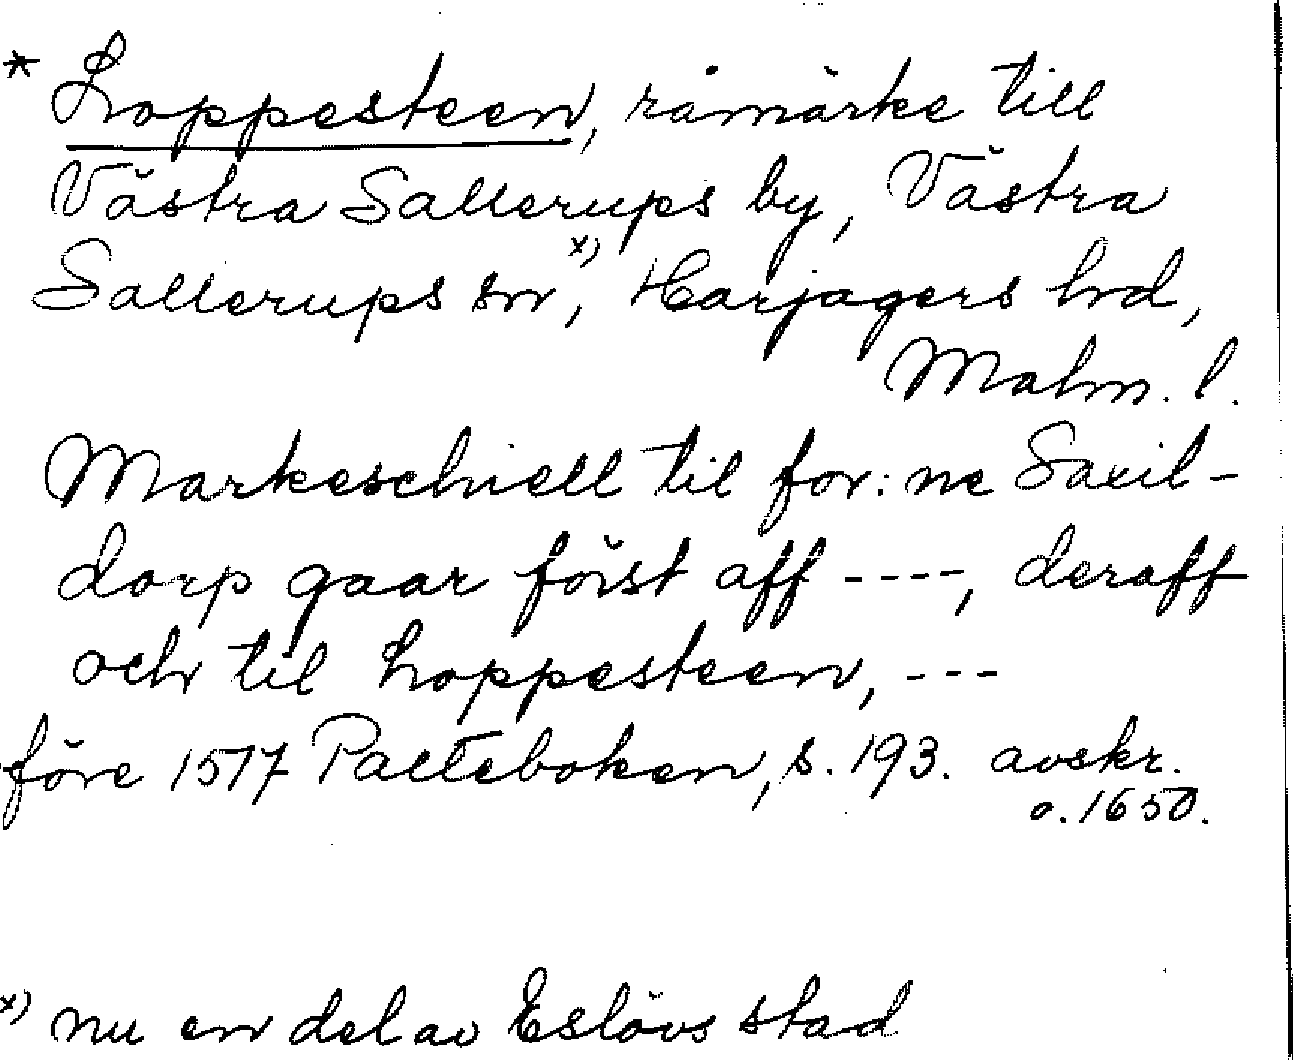 * Loppesteen, råmärke till
Västra Sallerups by, Västra
Sallerups sn x), Harjagers hd,
Malm. l.
Markeschiell til for: ne Saxil-
dorp gaar först aff ----, deraff
och til Loppesteen, ---
före 1517 Palteboken, s. 193. avskr.
o. 1650.
x) nu en del av Eslövs stad